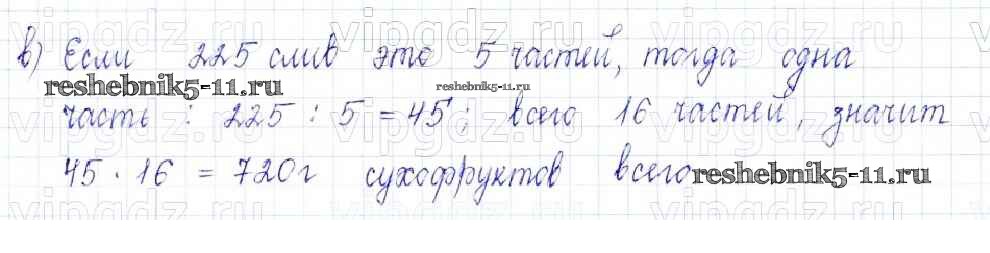 в) Если 225 слив это 5 частей, тогда одна
reshebnik5-11.ru reshebnik5-11.ru
часть : 225 : 5 = 45; всего 16 частей, значит
45 · 16 = 720г сухофруктов всего reshebnik5-11.ru